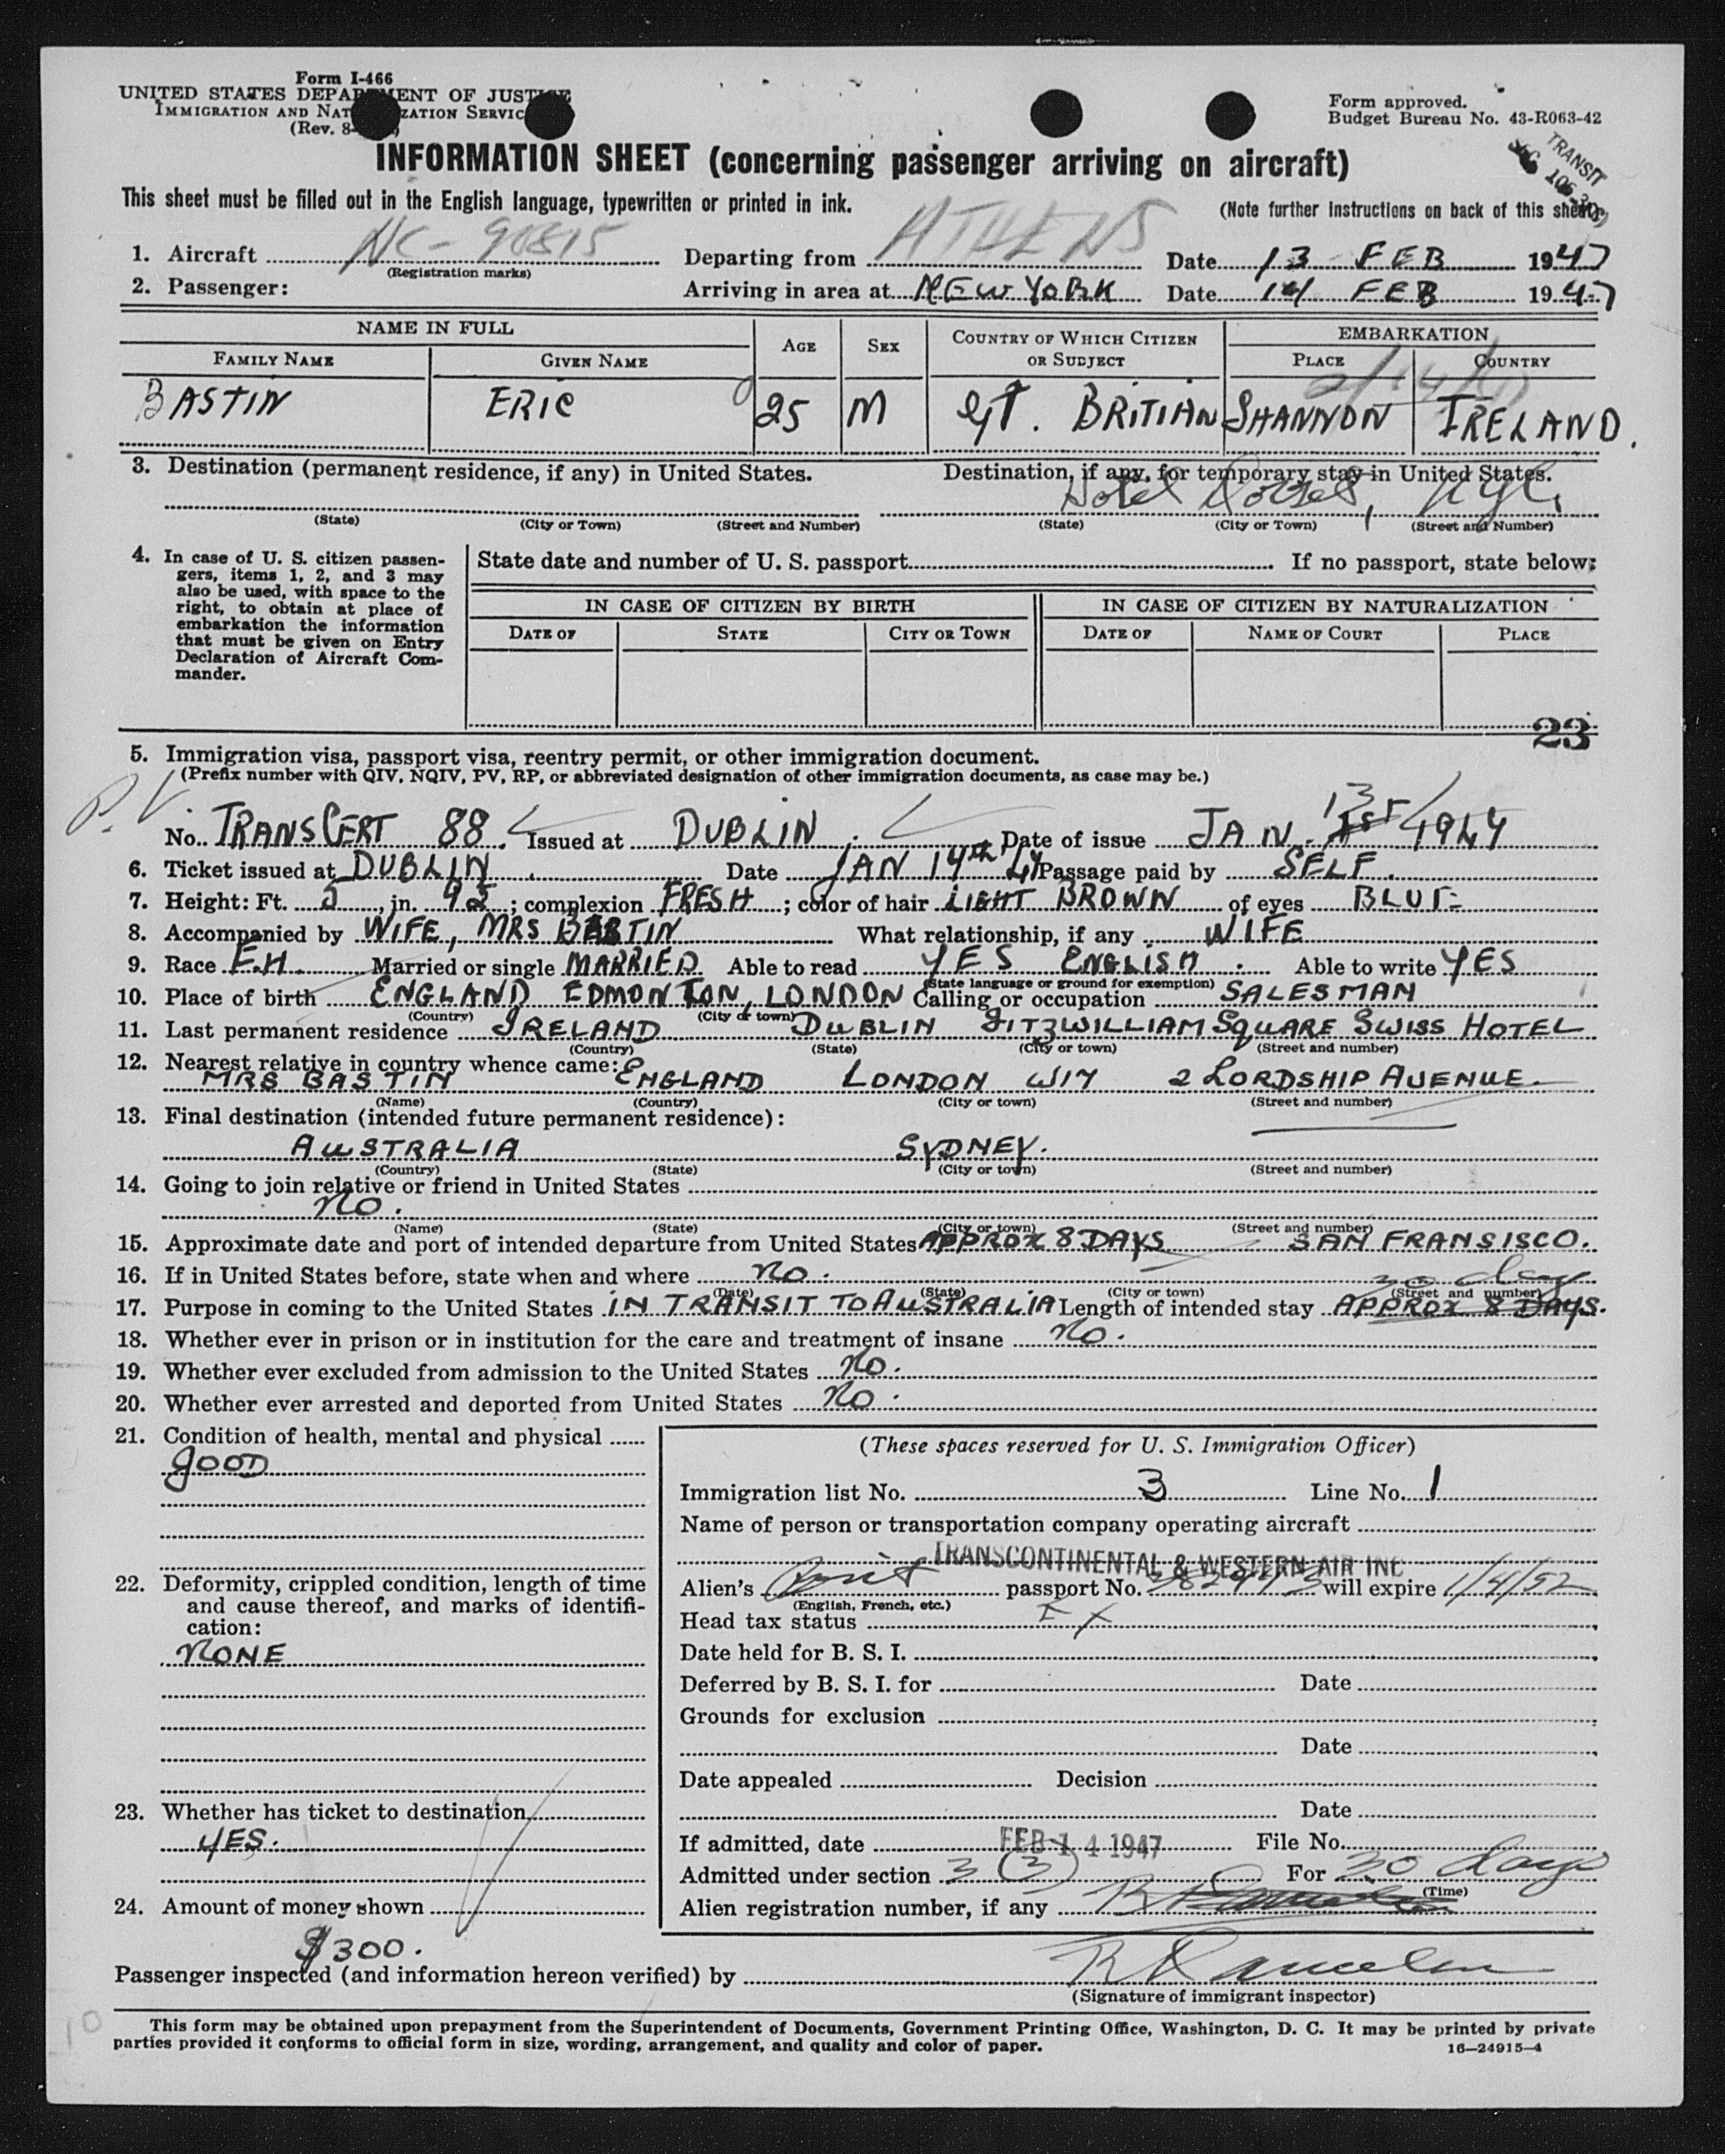 Form I-466
UNITED STATES DEPARTMENT OF JUSTICE
IMMIGRATION AND NATURALIZATION SERVICE
(Rev. 8-
Form approved.
Budget Bureau No. 43-R063-42
TRANSIT
INFORMATION SHEET (concerning passenger arriving on aircraft)
This sheet must be filled out in the English language, typewritten or printed in ink.
(Note further instructions on back of this sheet.)
1. Aircraft NC-90815 Departing from ATHENS Date 13 FEB 1947
(Registration marks)
2. Passenger: Arriving in area at NEW YORK Date 14 FEB 1947
NAME IN FULL AGE SEX COUNTRY OF WHICH CITIZEN OR SUBJECT EMBARKATION
FAMILY NAME GIVEN NAME PLACE COUNTRY
2/14/47
BASTIN ERIC 25 M GT. BRITIAN SHANNON IRELAND.
3. Destination (permanent residence, if any) in United States. Destination, if any, for temporary stay in United States.
Hotel Dorset, NYC.
(State) (City or Town) (Street and Number) (State) (City or Town) (Street and Number)
4. In case of U. S. citizen passengers, items 1, 2, and 3 may also be used, with space to the right, to obtain at place of embarkation the information that must be given on Entry Declaration of Aircraft Commander.
State date and number of U. S. passport. If no passport, state below:
IN CASE OF CITIZEN BY BIRTH IN CASE OF CITIZEN BY NATURALIZATION
DATE OF STATE CITY OR TOWN DATE OF NAME OF COURT PLACE
23
5. Immigration visa, passport visa, reentry permit, or other immigration document.
(Prefix number with QIV, NQIV, PV, RP, or abbreviated designation of other immigration documents, as case may be.)
P.V.
No. TRANSCERT 88. Issued at DUBLIN. Date of issue JAN. 13 1st 1947
6. Ticket issued at DUBLIN. Date JAN 14th 47 Passage paid by SELF.
7. Height: Ft. 5, in. 9½; complexion FRESH; color of hair LIGHT BROWN of eyes BLUE
8. Accompanied by WIFE, MRS BASTIN What relationship, if any WIFE
9. Race E.H. Married or single MARRIED. Able to read YES ENGLISH. Able to write YES
(State language or ground for exemption)
10. Place of birth ENGLAND EDMONTON, LONDON Calling or occupation SALESMAN
(Country) (City or town)
11. Last permanent residence IRELAND DUBLIN FITZWILLIAM SQUARE SWISS HOTEL
(Country) (State) (City or town) (Street and number)
12. Nearest relative in country whence came:
MRS BASTIN ENGLAND LONDON W17 2 LORDSHIP AVENUE.
(Name) (Country) (City or town) (Street and number)
13. Final destination (intended future permanent residence):
AUSTRALIA SYDNEY.
(Country) (State) (City or town) (Street and number)
14. Going to join relative or friend in United States
NO.
(Name) (State) (City or town) (Street and number)
15. Approximate date and port of intended departure from United States APPROX 8 DAYS SAN FRANSISCO.
16. If in United States before, state when and where NO.
(Date) (State) (City or town) (Street and number)
30 days
17. Purpose in coming to the United States IN TRANSIT TO AUSTRALIA Length of intended stay APPROX 8 DAYS.
18. Whether ever in prison or in institution for the care and treatment of insane NO.
19. Whether ever excluded from admission to the United States NO.
20. Whether ever arrested and deported from United States NO.
21. Condition of health, mental and physical
GOOD
22. Deformity, crippled condition, length of time and cause thereof, and marks of identification:
NONE
23. Whether has ticket to destination
YES.
24. Amount of money shown
$300.
(These spaces reserved for U. S. Immigration Officer)
Immigration list No. 3 Line No. 1
Name of person or transportation company operating aircraft
TRANSCONTINENTAL & WESTERN AIR INC
Alien's Brit passport No. will expire 1/4/52
(English, French, etc.)
Head tax status EX
Date held for B. S. I.
Deferred by B. S. I. for Date
Grounds for exclusion
Date
Date appealed Decision
Date
If admitted, date FEB 14 1947 File No.
Admitted under section 3 (3) For 30 days
(Time)
Alien registration number, if any
Passenger inspected (and information hereon verified) by
(Signature of immigrant inspector)
10
This form may be obtained upon prepayment from the Superintendent of Documents, Government Printing Office, Washington, D. C. It may be printed by private
parties provided it conforms to official form in size, wording, arrangement, and quality and color of paper.
16—24915-4